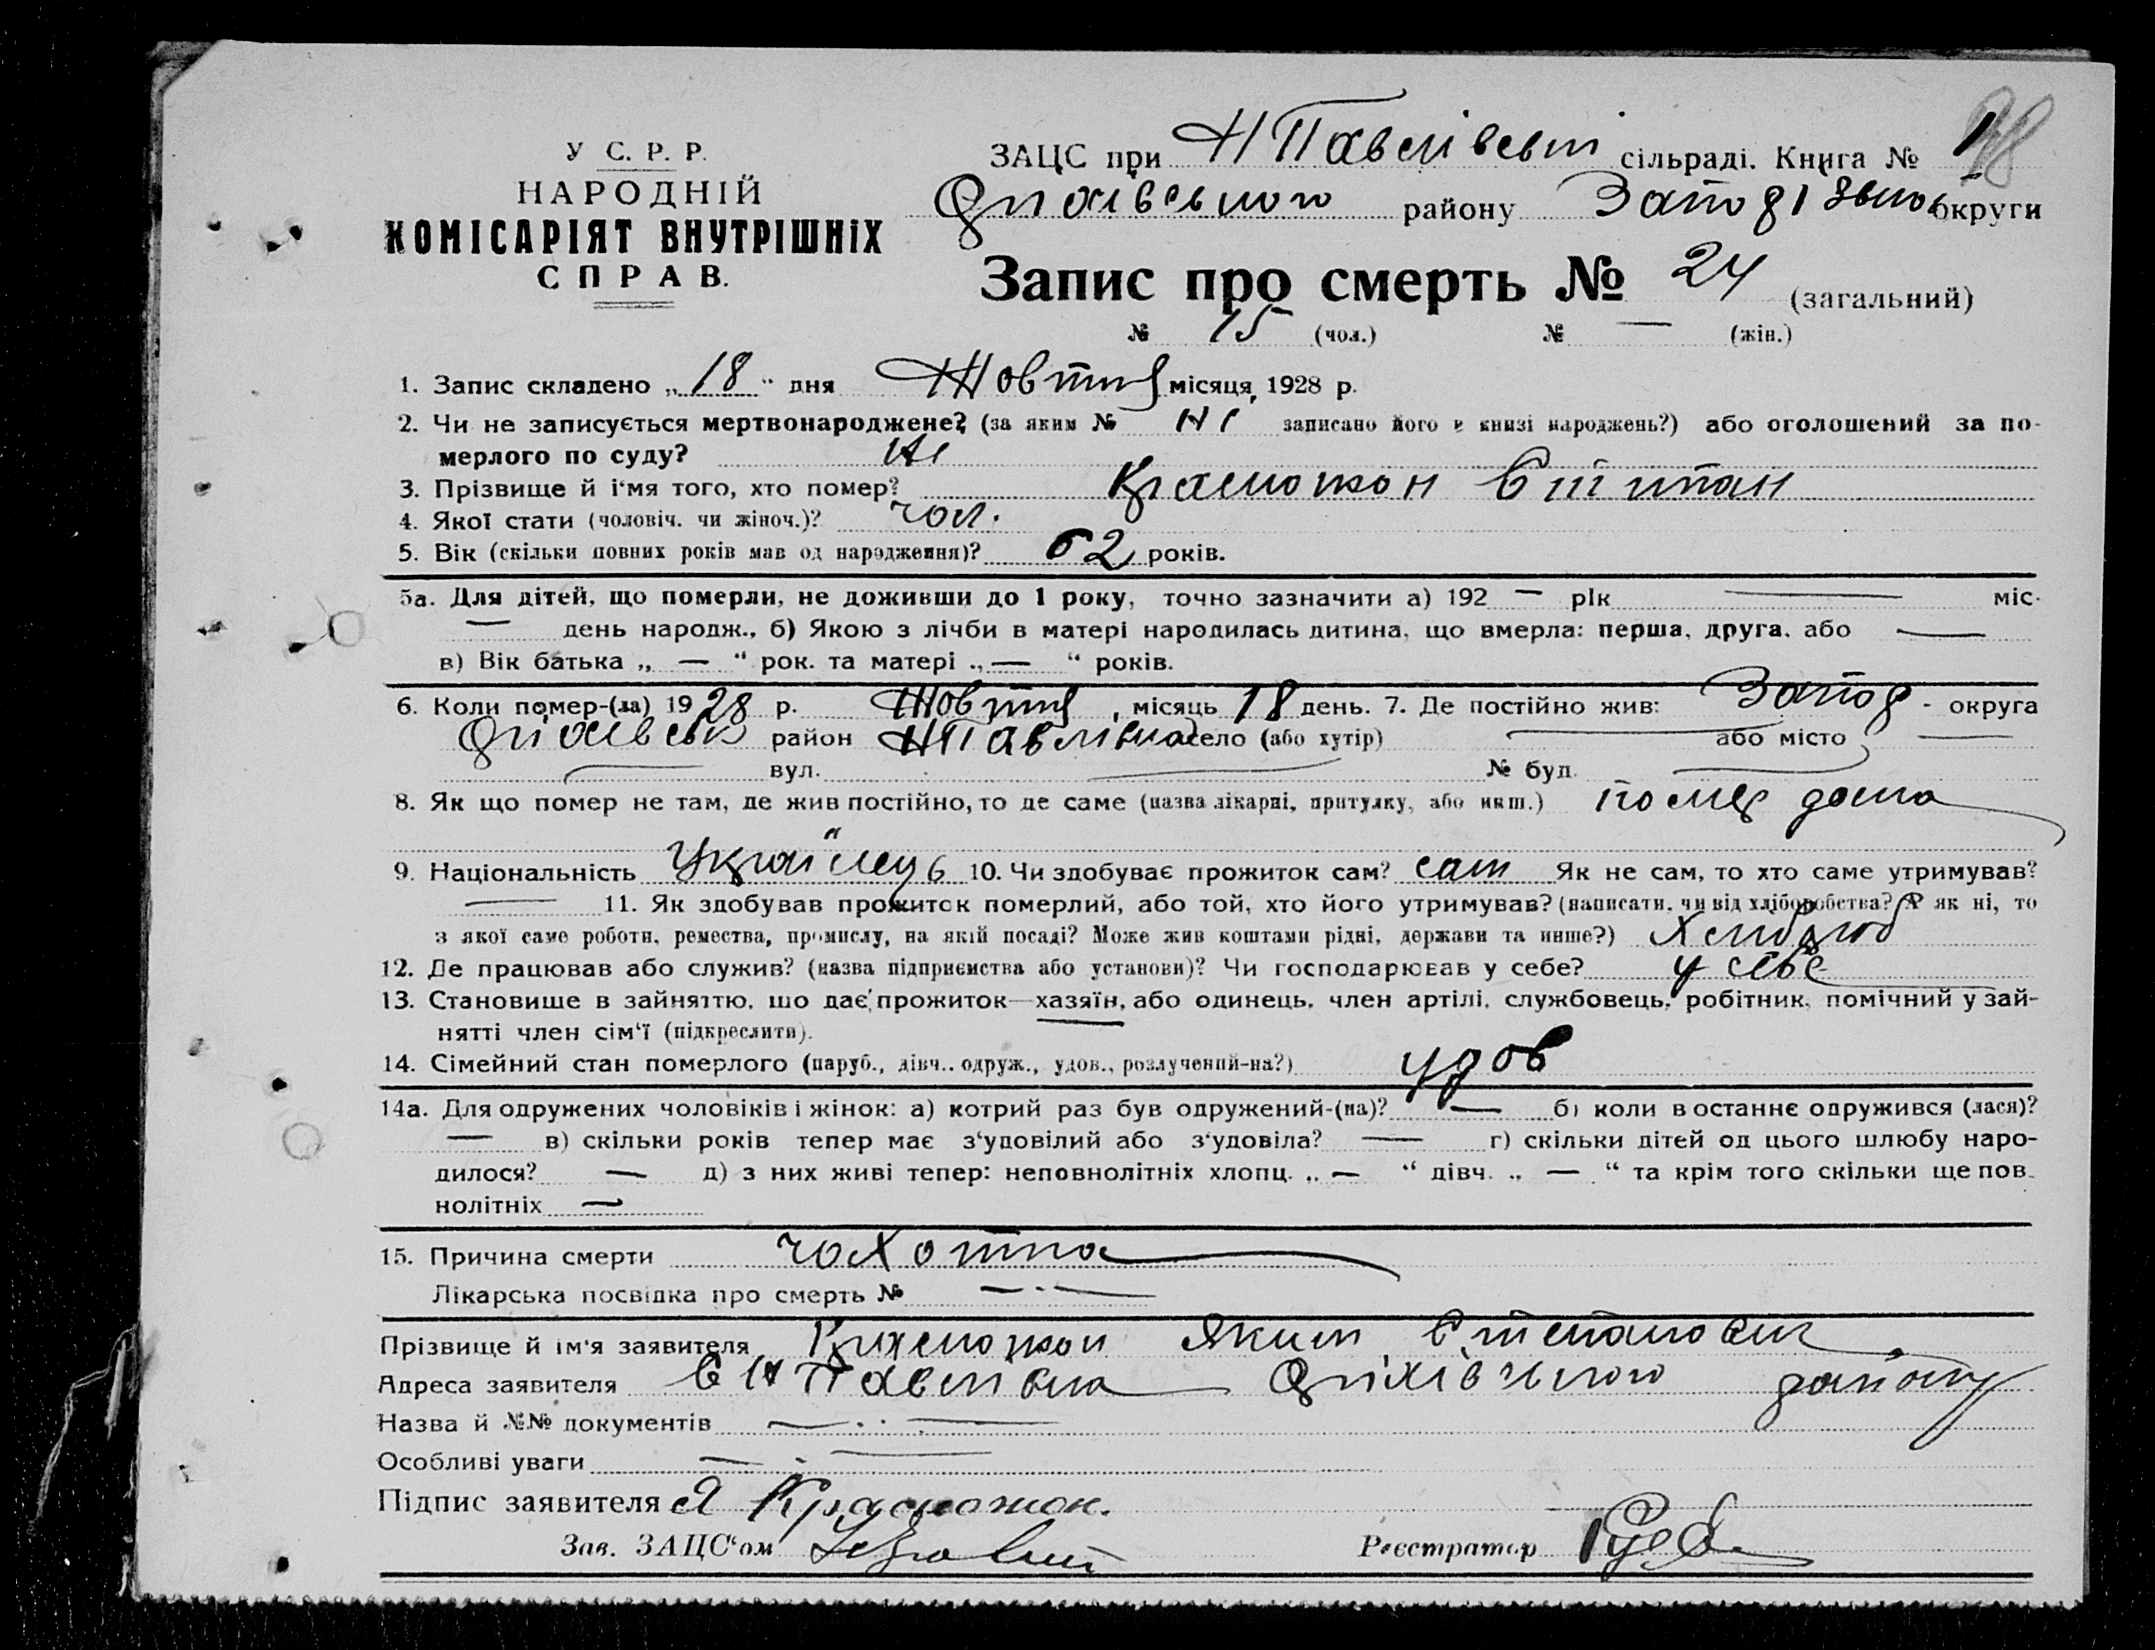 У С. Р. Р.
НАРОДНІЙ
КОМІСАРІЯТ ВНУТРІШНІХ
СПРАВ.
ЗАЦС при Н Павлівські сільраді. Книга № 1
Оріхівського району Запорізької округи
Запис про смерть № 24 (загальний)
№ 15 (чол.) № — (жін.)
1. Запис складено „ 18 “ дня Жовтня місяця, 1928 р.
2. Чи не записується мертвонароджене? (за яким № Ні записано його в книзі народжень?) або оголошений за по-
мерлого по суду? Ні
3. Прізвище й і'мя того, хто помер? Красножон Степан
4. Якої стати (чоловіч. чи жіноч.)? чол.
5. Вік (скільки повних років мав од народження)? 62 років.
5а. Для дітей, що померли, не доживши до 1 року, точно зазначити а) 192 — рік — міс.
— день народж., б) Якою з лічби в матері народилась дитина, що вмерла: перша, друга, або —
в) Вік батька „ — “ рок. та матері „ — “ років.
6. Коли помер-(ла) 1928 р. Жовтня, місяць 18 день. 7. Де постійно жив: Запор - округа
Оріхівськ район Н Павлівка село (або хутір) — або місто —
— вул. — № буд. —
8. Як що помер не там, де жив постійно, то де саме (назва лікарні, притулку, або инш.) помер дома
9. Національність Українець 10. Чи здобуває прожиток сам? сам Як не сам, то хто саме утримував?
— 11. Як здобував прожиток померлий, або той, хто його утримував? (написати, чи від хліборобства? А як ні, то
з якої саме роботи, ремества, промислу, на якій посаді? Може жив коштами рідні, держави та инше?) Хлібороб
12. Де працював або служив? (назва підприємства або установи)? Чи господарював у себе? у себе
13. Становище в зайняттю, що дає прожиток—хазяїн, або одинець, член артілі, службовець, робітник, помічний у зай-
нятті член сім'ї (підкреслити).
14. Сімейний стан померлого (паруб., дівч., одруж., удов., розлучений-на?) удов
14а. Для одружених чоловіків і жінок: а) котрий раз був одружений-(на)? — б) коли востаннє одружився (лася)?
— в) скільки років тепер має з'удовілий або з'удовіла? — г) скільки дітей од цього шлюбу наро-
дилося? — д) з них живі тепер: неповнолітніх хлопц. „ — “ дівч. „ — “ та крім того скільки ще пов-
нолітніх —
15. Причина смерти чохотка
Лікарська посвідка про смерть № —
Прізвище й ім'я заявителя Красножон Яким Степанович
Адреса заявителя с Н Павлівка Оріхівського району
Назва й №№ документів —
Особливі уваги —
Підпис заявителя Я Красножон.
Зав. ЗАЦС'ом
Реєстратор